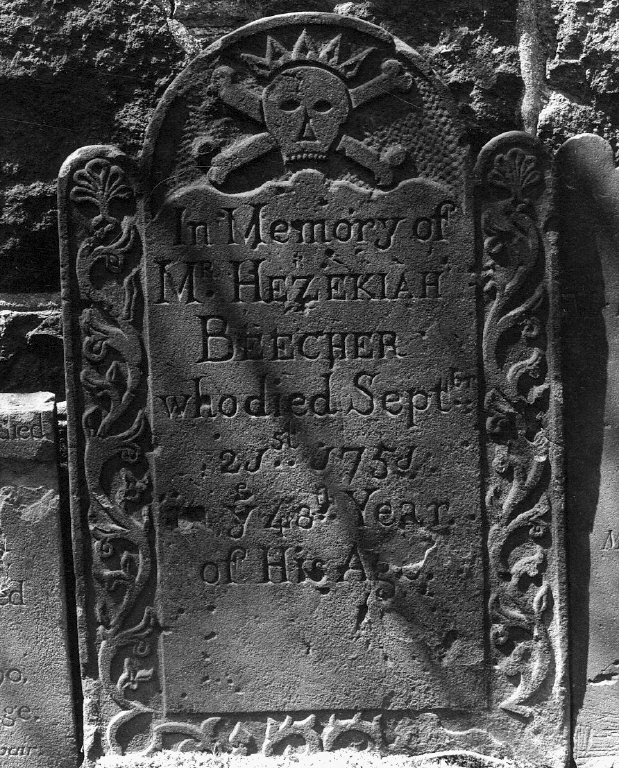 In Memory of
Mr. HEZEKIAH
BEECHER
who died Septbr
21st. 1751
in ye 48d Year
of His Age.
died
ed
ge.